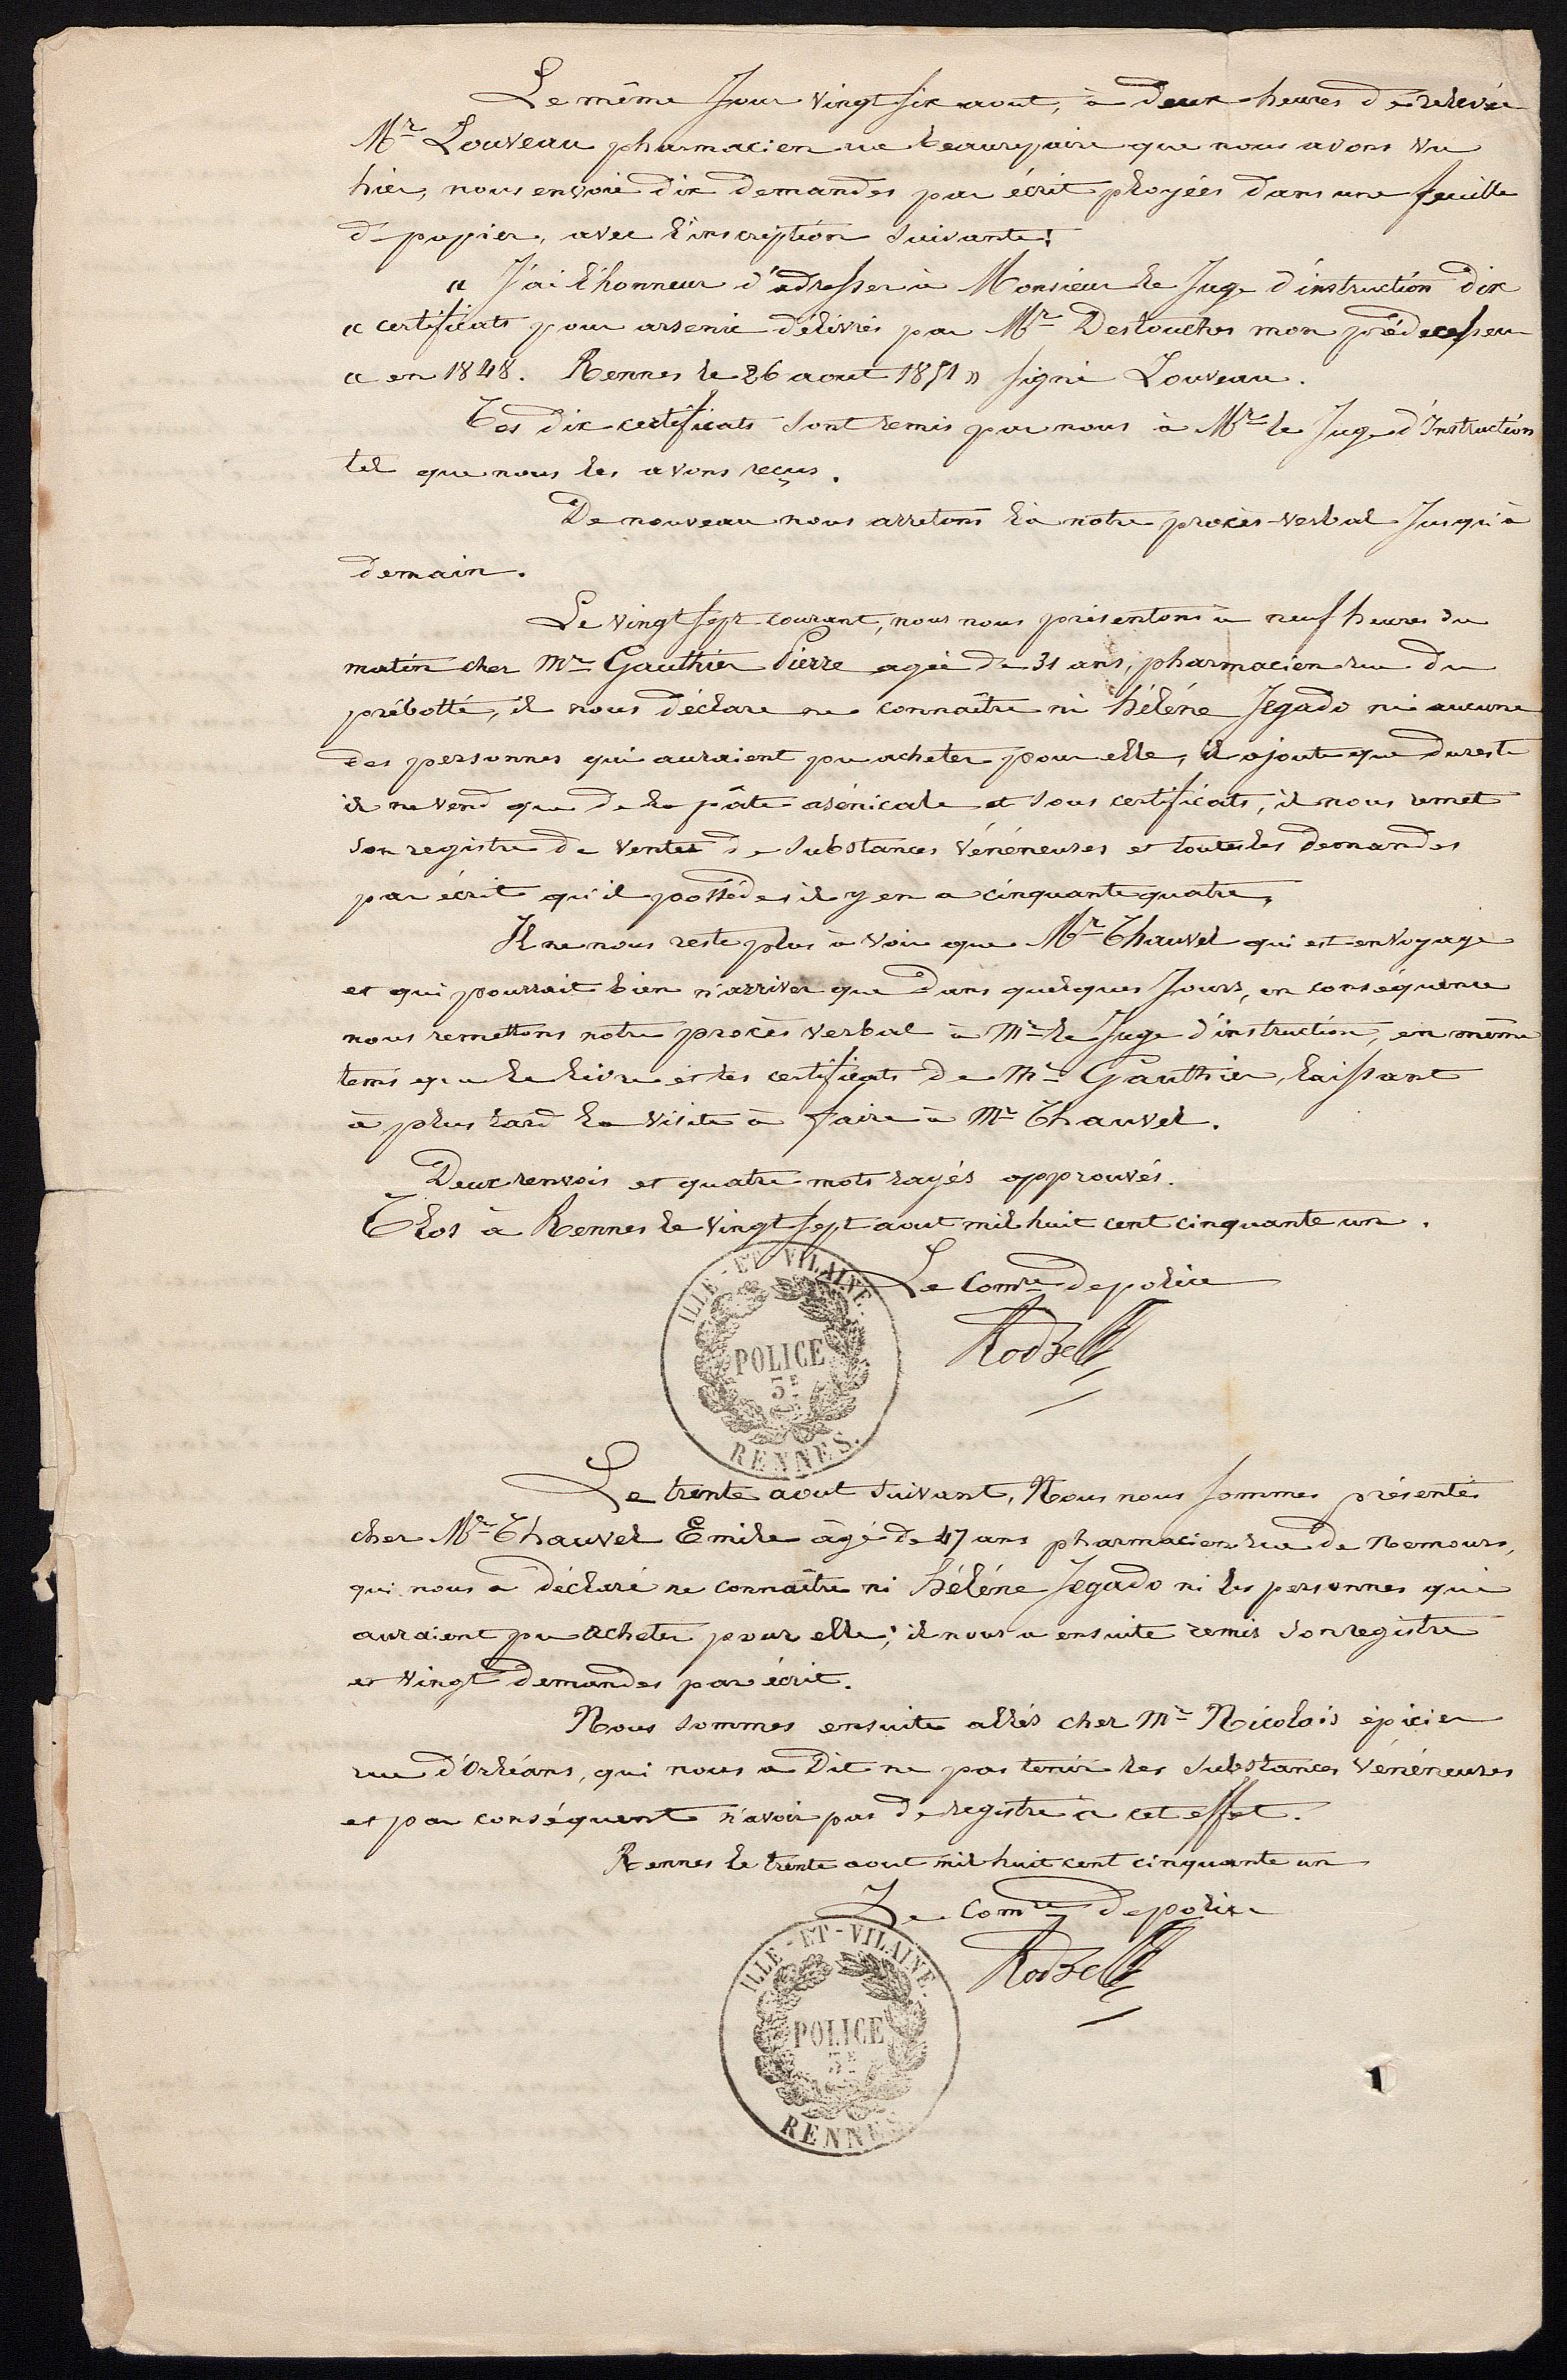 Le même Jour vingt six aout, à deux heures de relevée
Mr Louveau pharmacien rue beaurepaire que nous avons vu
hier, nous envoie dix demandes par écrit ployées dans une feuille
de papier, avec l'inscription suivante:
« J'ai l'honneur d'adresser à Monsieur le Juge d'instruction dix
« certificats pour arsenic délivrés par Mr Destouches mon prédecesseur
« en 1848. Rennes le 26 aout 1851 » signé Louveau.
Ces dix certificats sont remis par nous à Mr le Juge d'Instruction
tel que nous les avons reçus.
De nouveau nous arretons là notre procès-verbal Jusqu'à
demain.
Le vingt sept courant, nous nous présentons à neuf heures du
matin chez Mr Gauthier Pierre agé de 31 ans, pharmacien rue du
prébotté, il nous déclare ne connaître ni hélène Jegado ni aucune
des personnes qui auraient pu acheter pour elle, il ajoute que du reste
il ne vend que de la pâte asénicale et sous certificats, il nous remet
son registre de ventes de substances vénéneuses et toutes les demandes
par écrit qu'il possède, il y en a cinquante quatre,
Il ne nous reste plus à voir que Mr Chauvel qui est en voyage
et qui pourrait bien n'arriver que dans quelques Jours, en conséquence
nous remettons notre procès verbal à Mr le Juge d'instruction, en même
tems que le livre et les certificats de Mr Gauthier, laissant
à plus tard la visite à faire à Mr Chauvel.
Deux renvois et quatre mots rayés approuvés.
Clos à Rennes le vingt sept aout mil huit cent cinquante un.
Le Comre de police
ILLE-ET-VILAINE.
POLICE
3E
RENNES.
Le trente aout suivant, Nous nous sommes présentés
chez Mr Chauvel Emile âgé de 47 ans pharmacien rue de Nemours,
qui nous a déclaré ne connaître ni hélène Jegado ni les personnes qui
auraient pu acheter pour elle; il nous a ensuite remis son registre
et vingt demandes par écrit.
Nous sommes ensuite allés chez Mr Nicolais épicier
rue d'Orléans, qui nous a dit ne pas tenir les substances vénéneuses
et par conséquent n'avoir pas de registre à cet effet.
Rennes le trente aout mil huit cent cinquante un
Le Comre de police
ILLE-ET-VILAINE.
POLICE
3E
RENNES